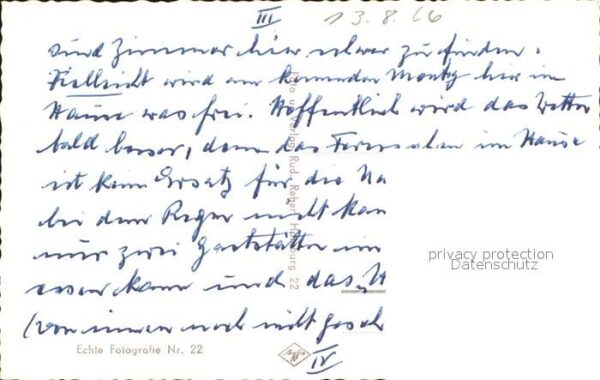 III 13.8.66
sind Zimmer hier schwer zu finden.
Vielleicht wird am kommenden Montg hier im
Hause was frei. Hoffentlich wird das Wetter
bald besser, denn das Fernsehen im Hause
ist kein Ersatz für die Na
bei dem Regen nicht kan
nur zwei Gaststätten im
essen kann und das
(von innen noch nicht geseh
Foto u. Verlag Rud. Reher Hamburg 22
privacy protection
Datenschutz
Echte Fotografie Nr. 22
Agfa
IV